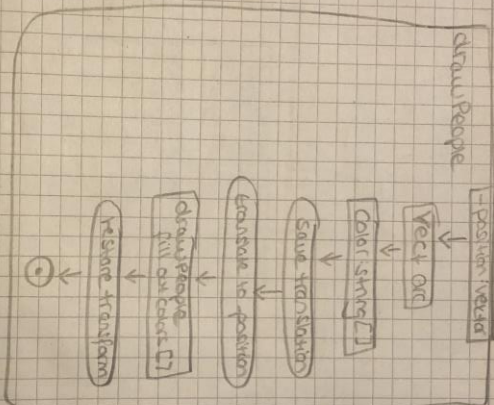 drawPeople
-position:vector
Vect arc
Color:string[]
save translation
translate to position
drawPeople
fill out colors[]
restore transform